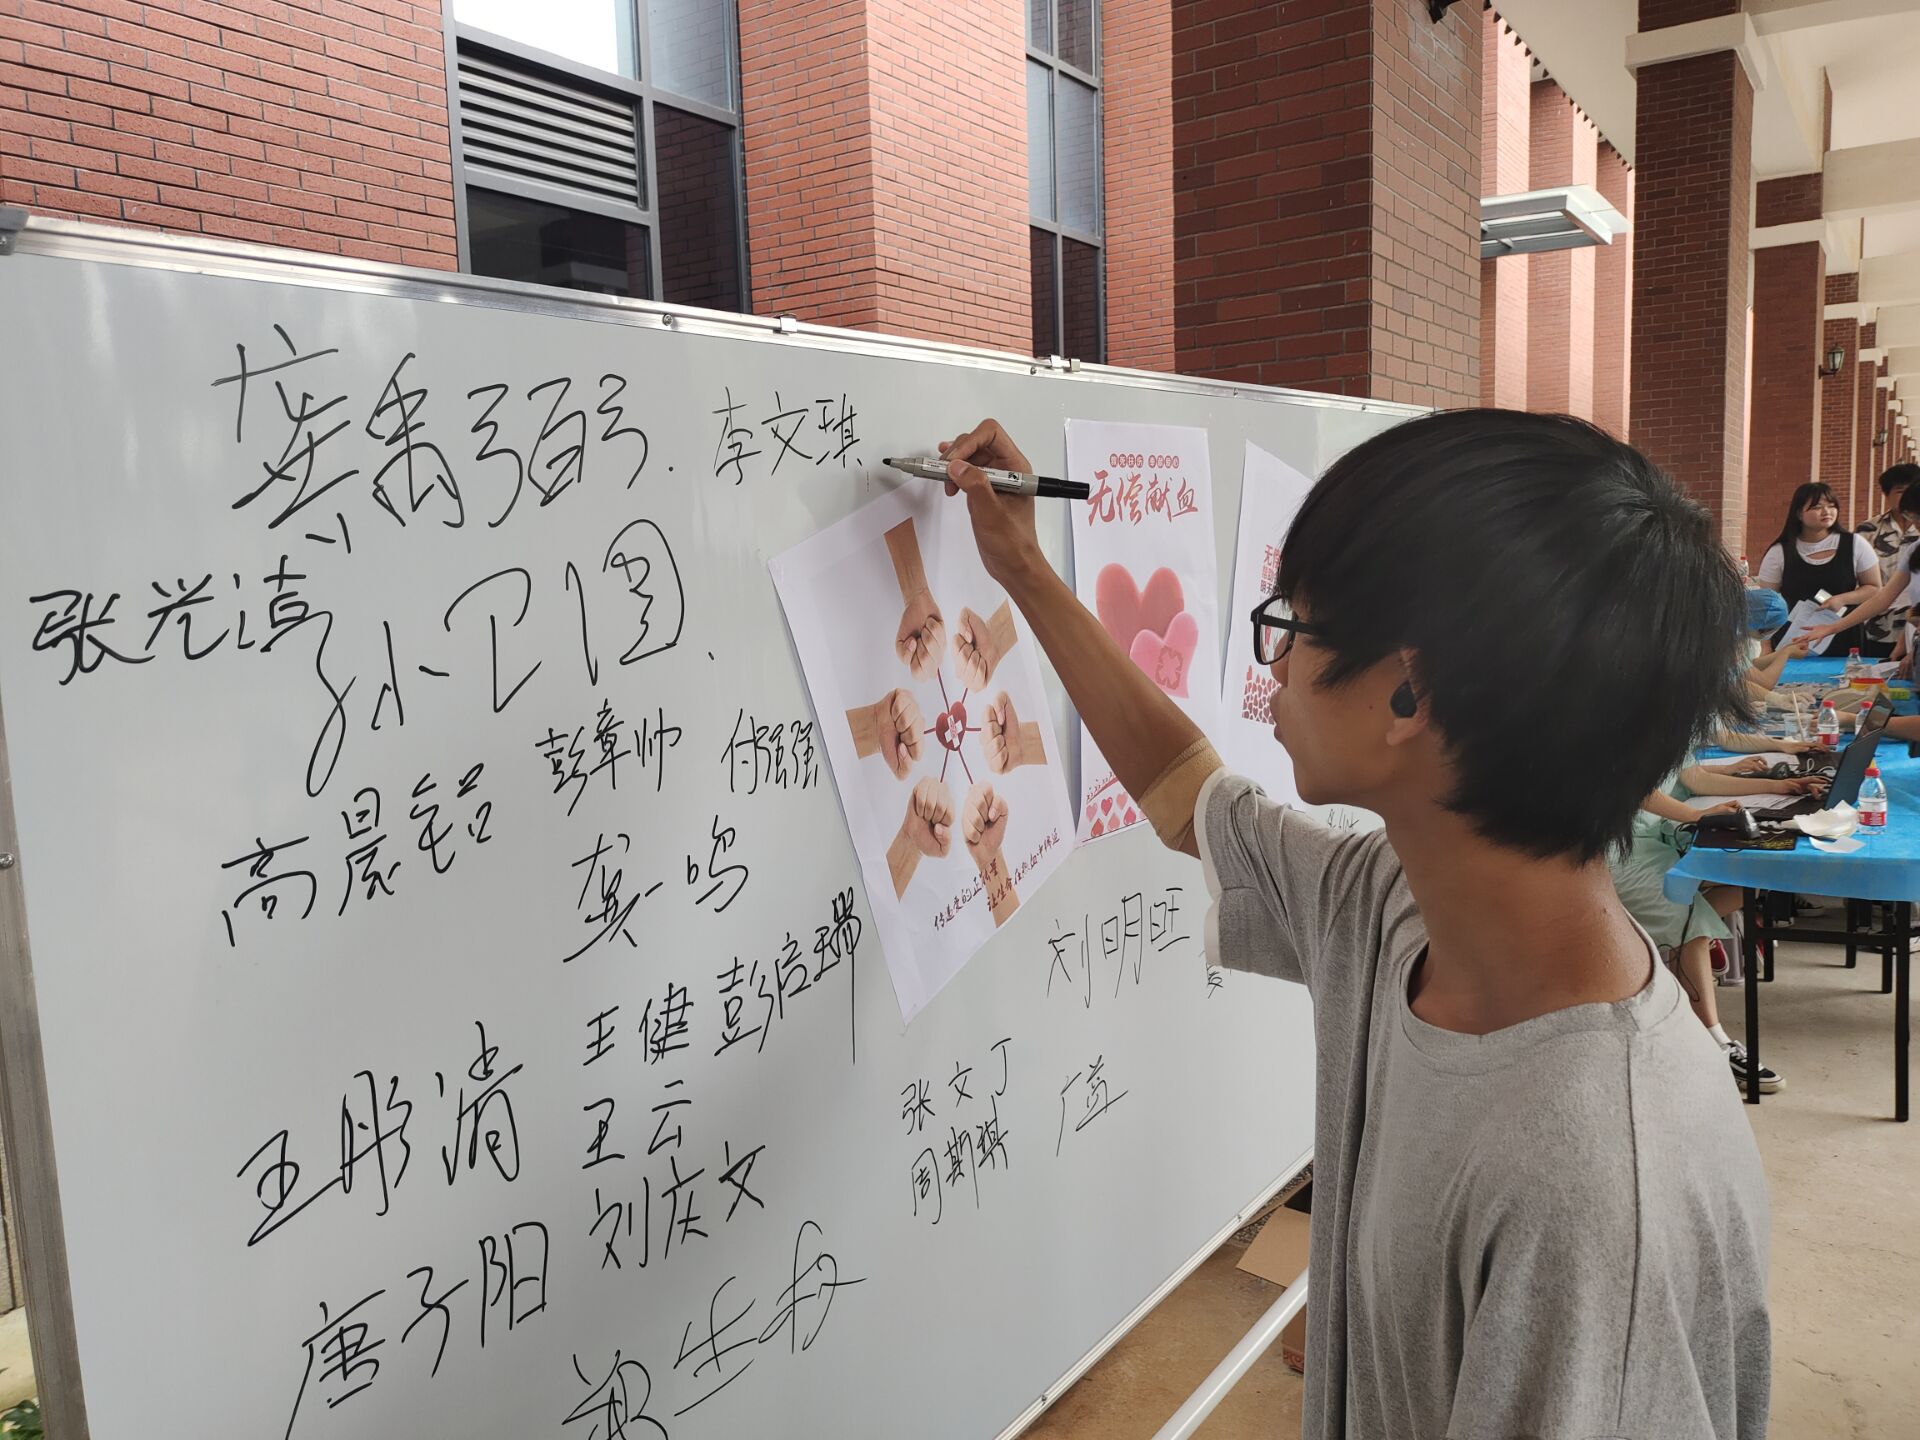 龚禹弼.
李文琪
无偿献血
张兴涛
孙卫国.
彭章帅
付强强
高晨铭
龚一鸣
传递爱的正能量
让生命在热血中绵延
刘明旺
王健
彭启瑞
王彤清
王云
张文丁
周斯琪
刘庆文
唐子阳